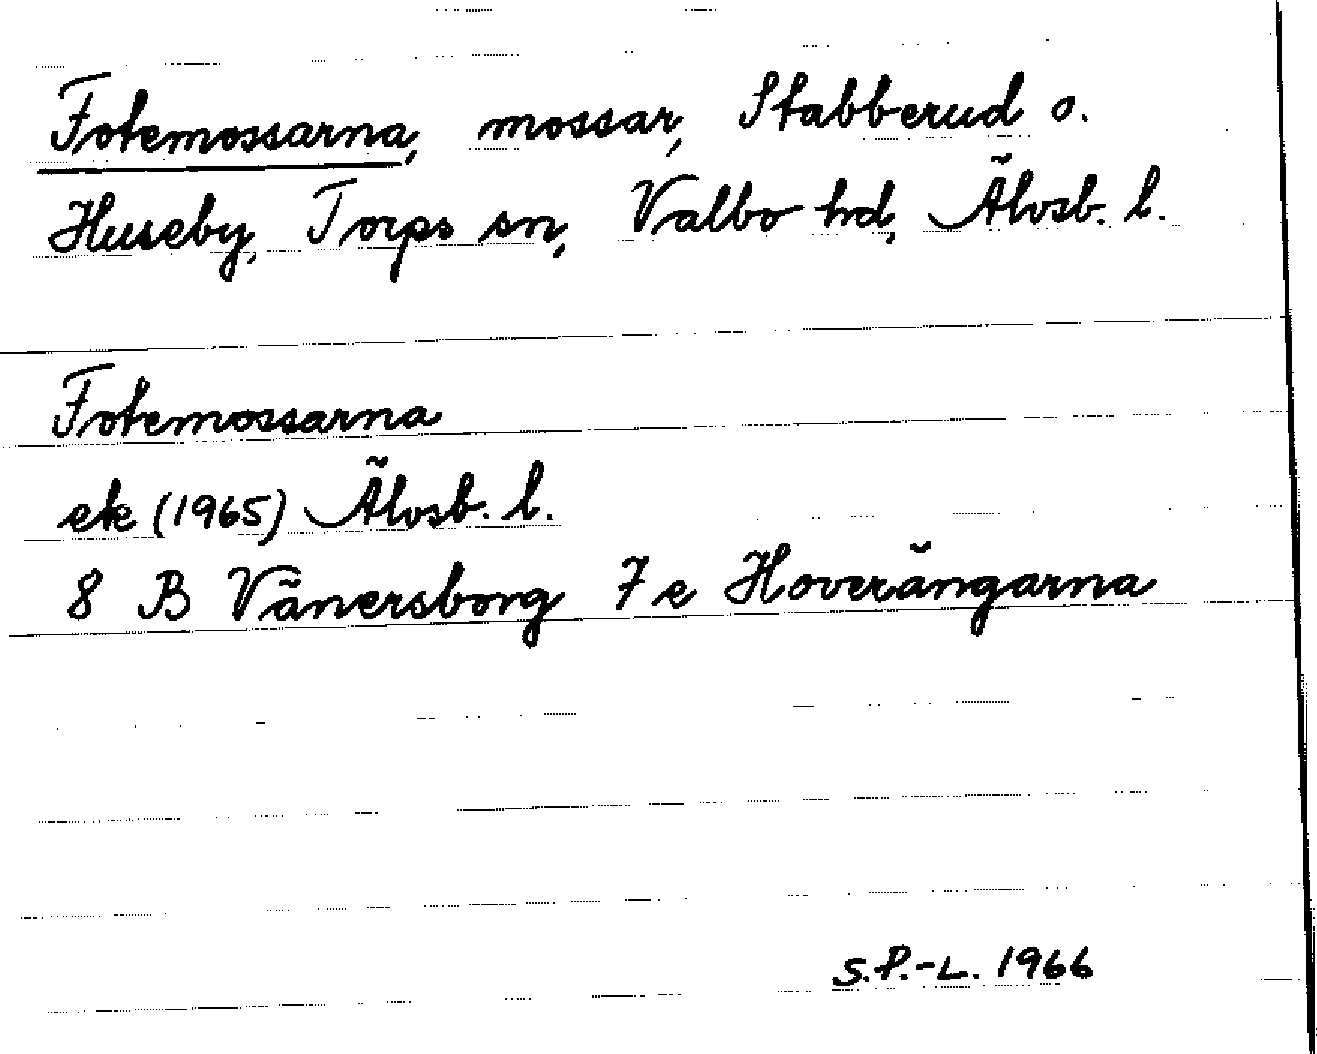 Fotemossarna, mossar, Stabberud o.
Huseby, Torps sn, Valbo hd, Älvsb. l.
Fotemossarna
ek (1965) Älvsb. l.
8 B Vänersborg 7 e Hoverängarna
S.P.-L. 1966